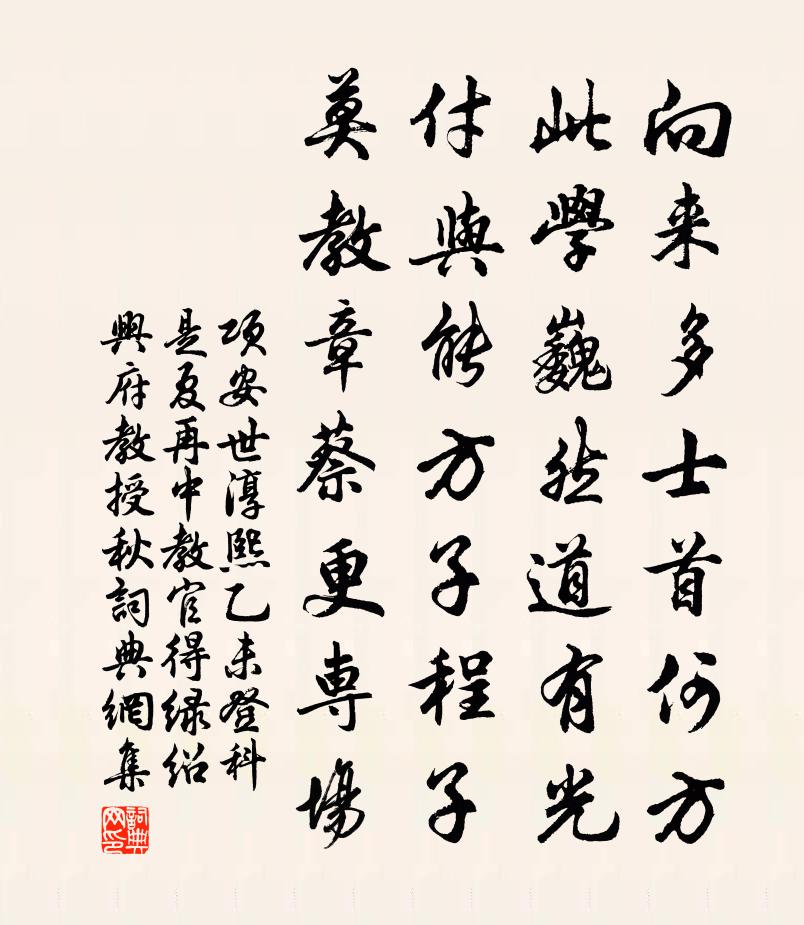 向来多士首何方
此學巍然道有光
付與能方子程子
莫教章蔡更専場
項安世淳熙乙未登科
是夏再中教官得緑紹
興府教授秋詞典網集
詞典
网印